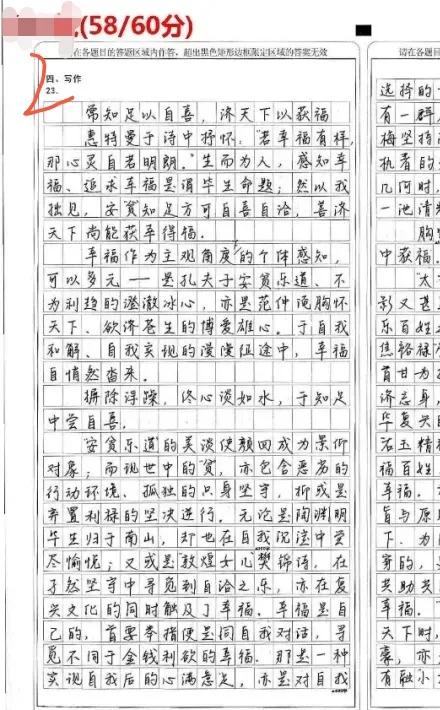 (58/60分)
请在各题目的答题区域内作答，超出黑色矩形边框限定区域的答案无效
四、写作
23.
常知足以自喜，济天下以获福
惠特曼于诗中抒怀："若幸福有样，
那心灵自若明朗。"生而为人，感知幸
福、追求幸福是谓毕生命题；然以我
拙见，安贫知足方可自喜自洽，善济
天下尚能获幸得福。
幸福作为主观角度的个体感知，
可以多元——是孔夫子安贫乐道、不
为利趋的澄澈冰心，亦是范仲淹胸怀
天下、欲济苍生的博爱雄心。于自我
和解、自我实现的漫漫征途中，幸福
自悄然踏来。
摒除浮躁，终心淡如水，于知足
中尝自喜。
"安贫乐道"的美谈使颜回成为景仰
对象；而现世中的"贫"，亦包含恶劣的
行动环境、孤独的只身坚守，抑或是
弃置利禄的坚决进行。无论是陶渊明
毕生归于南山，却也在自我沉淀中尝
尽愉悦；又或是敦煌女儿樊锦诗，在
孑然坚守中寻觅到自洽之乐，亦在复
兴文化的同时触及了幸福。幸福是自
己的，首要奉指便是同自我对话，寻
觅不同于金钱利欲的幸福。那是一种
实现自我后的心满意足，亦是对自我
请在各题目的
选择的一
有一群
梅坚持
执着的
几何时，
一池清
胸
中获福。
"太
影又甚
乐百姓
焦裕禄
首甘为
济志身，
华复兴
沾玉精
福百姓
幸福。
旨与原
下、为
穷的，
共助共
幸福。
天下时，
豪，亦
有融小